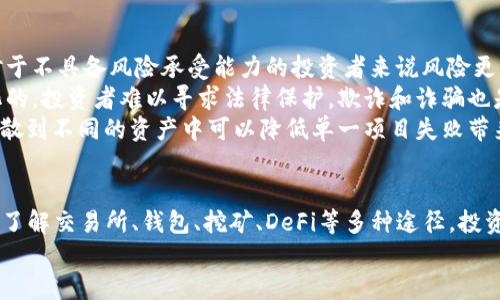 于不具备风险承受能力的投资者来说风险更
的，投资者难以寻求法律保护，欺诈和诈骗也
散到不同的资产中可以降低单一项目失败带
了解交易所、钱包、挖矿、DeFi等多种途径，投资